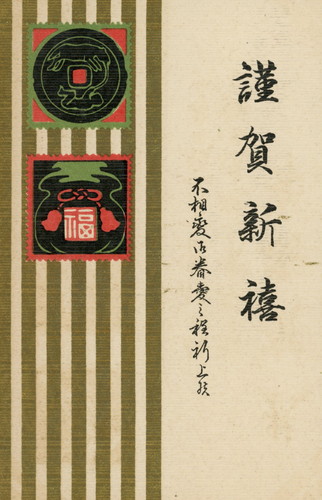 謹賀新禧
不相変御眷愛之程祈上候
福